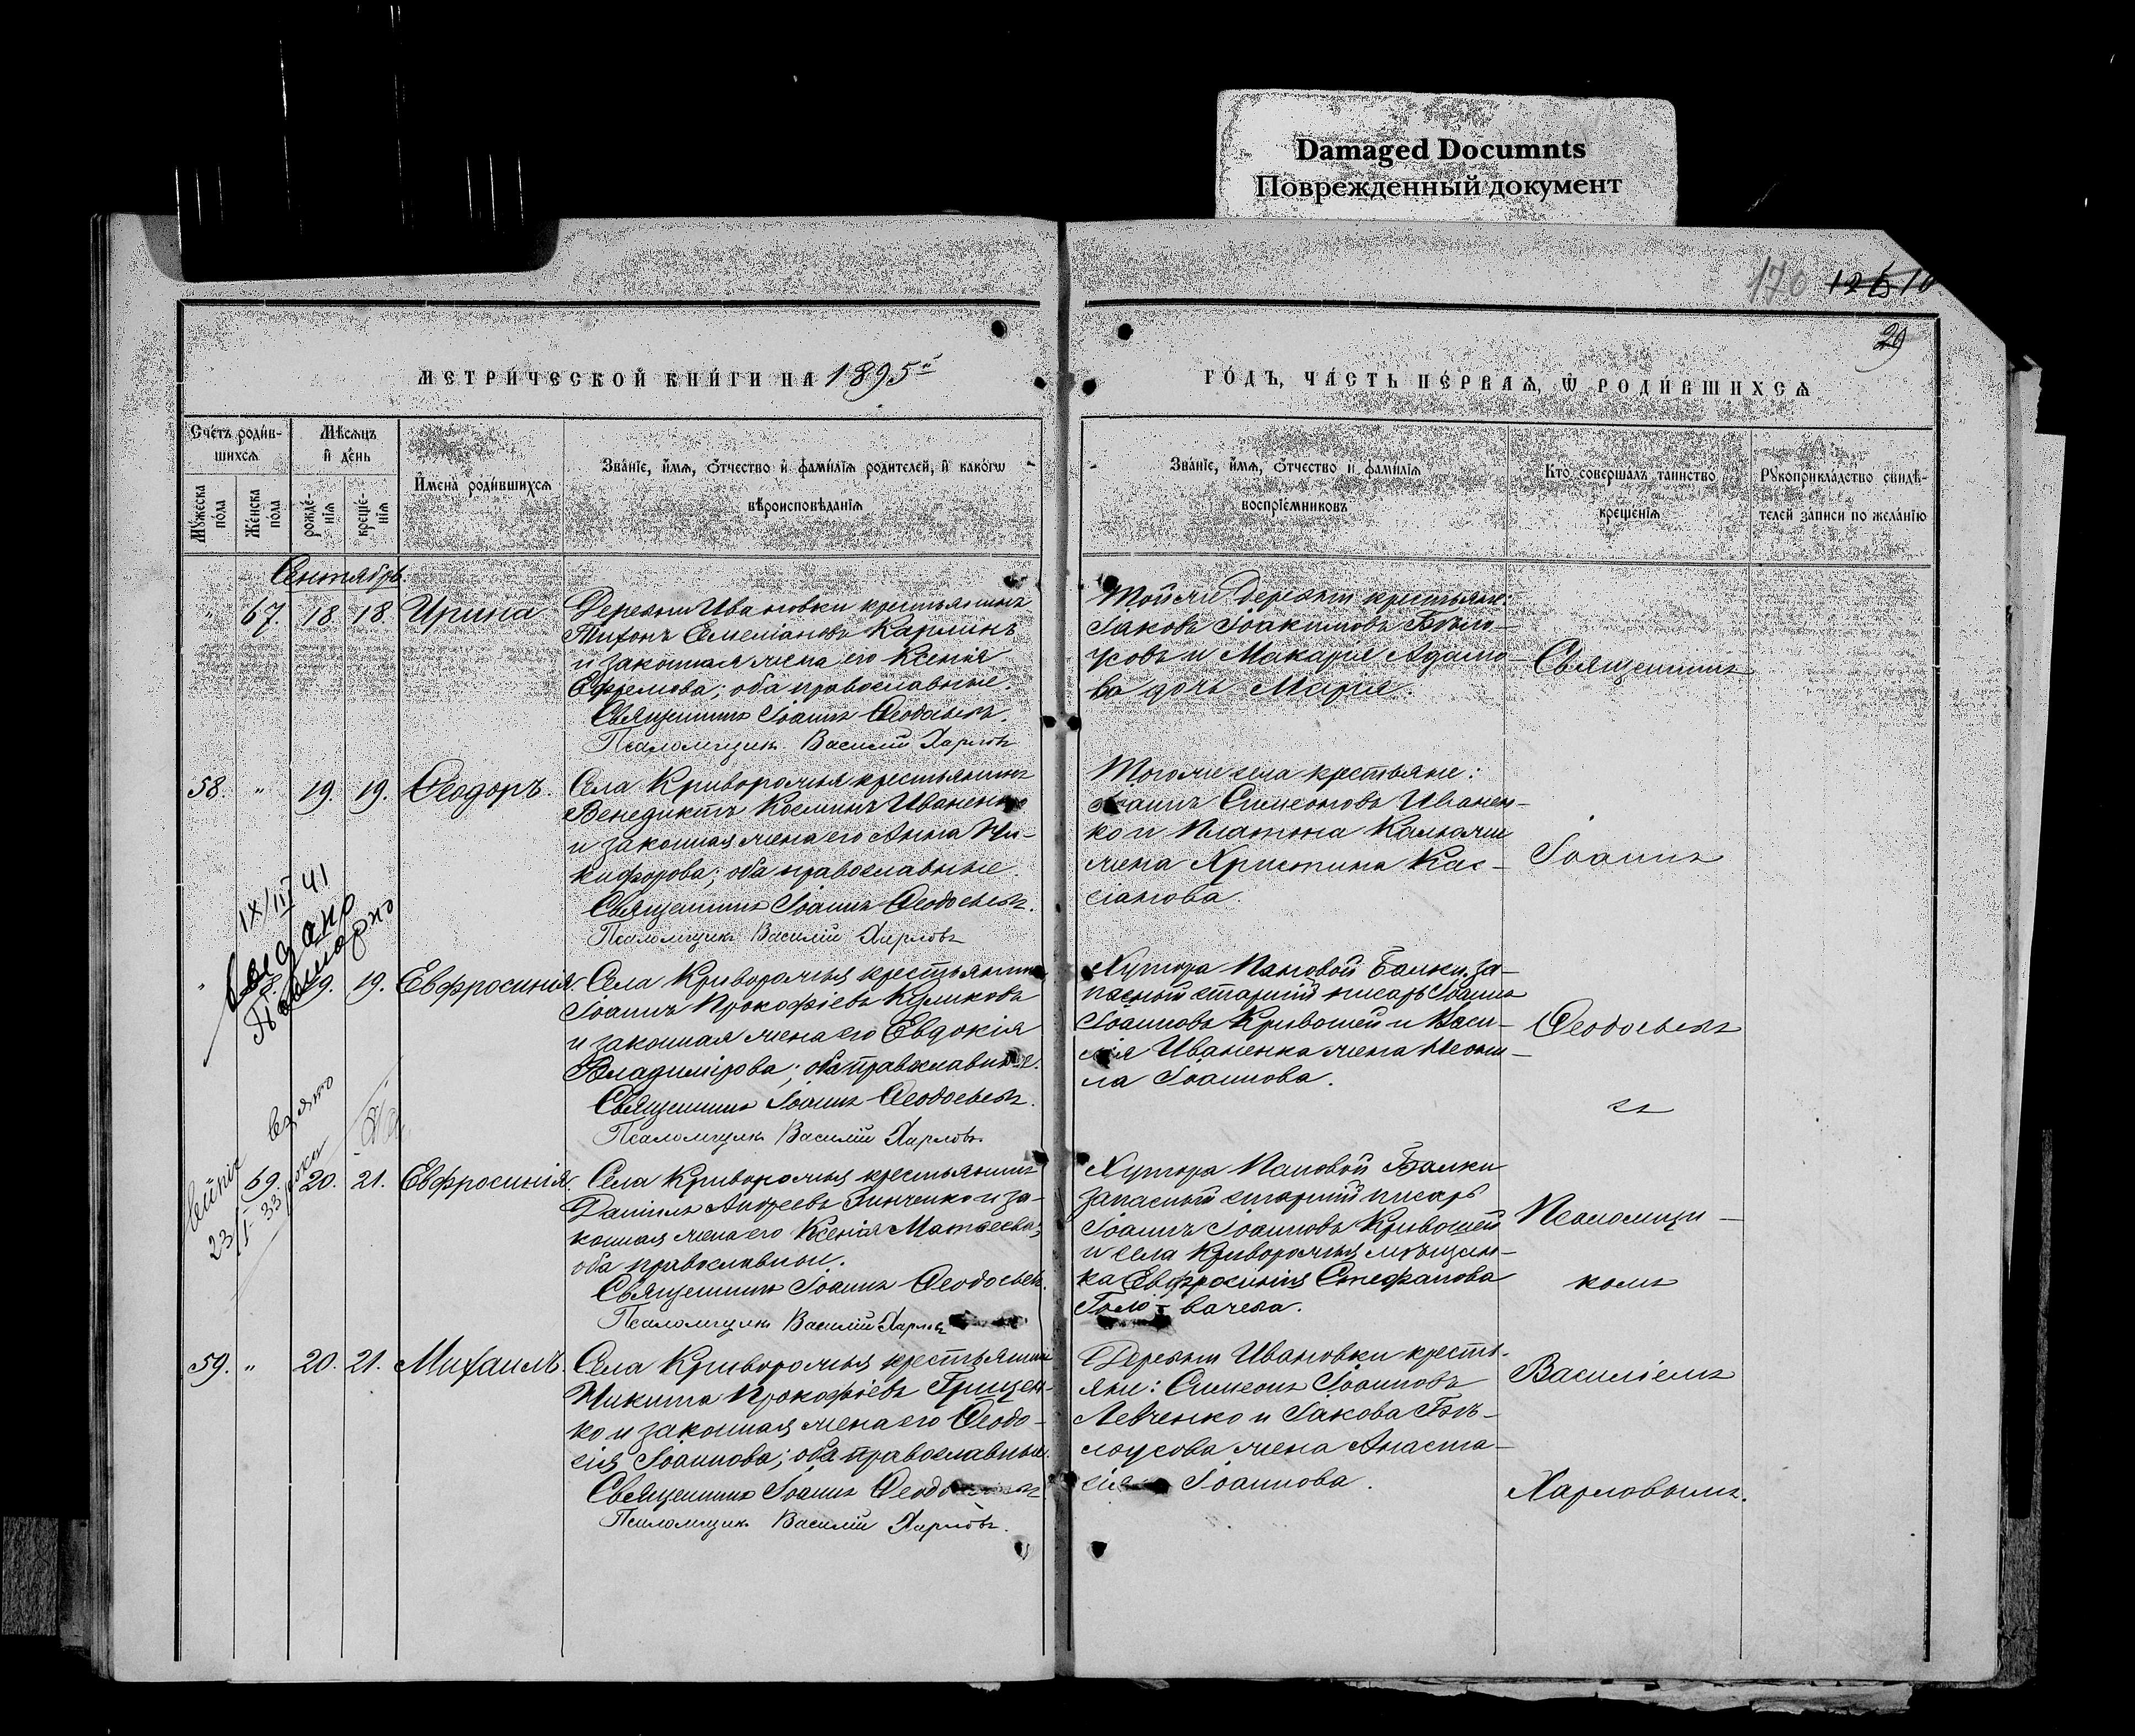 Damaged Documnts
Поврежденный документ
170
29
МЕТРИ́ЧЕСКОЙ КНИ́ГИ НА 1895й
ГО́ДЪ, ЧА́СТЬ ПЕ́РВАѦ, Ѿ РОДИ́ВШИХСѦ
Сче́тъ роди́в-
шихсѧ
Мѣ́сѧцъ
и҆ де́нь
Мꙋ́жеска
по́ла
Же́нска
по́ла
рожде́-
нїѧ
креще́-
нїѧ
И҆мена̀ роди́вшихсѧ
Зва́нїе, и҆́мѧ, ѻ҆́тчество и҆ фами́лїѧ роди́телей, и҆ како́гѡ
вѣроисповѣ́данїѧ
Зва́нїе, и҆́мѧ, ѻ҆́тчество и҆ фами́лїѧ
воспрїе́мниковъ
Кто̀ соверша́лъ та́инство
креще́нїѧ
Рꙋкоприкла́дство свидѣ́-
телей за́писи по жела́нїю
Сентябрь.
" 67. 18. 18. Ирина
Деревни Ивановки крестьянинъ
Тихонъ Емеліановъ Карлинъ
и законная жена его Ксенія
Ефремова; оба православные.
Священникъ Іоаннъ Ѳеодосьевъ.
Псаломщикъ Василій Харловъ
Той же деревни крестьяне:
Іаковъ Іоакимовъ Бѣло-
усовъ и Макарія Адамо-
ва дочь Марія.
Священникъ
58. " 19. 19. Ѳеодоръ.
Села Криворожья крестьянинъ
Венедиктъ Косминъ Иваненко
и законная жена его Анна Ни-
кифорова; оба православные.
Священникъ Іоаннъ Ѳеодосьевъ.
Псаломщикъ Василій Харловъ
Того же села крестьяне:
Іоаннъ Симеоновъ Иванен-
ко и Платона Калюжи
жена Христина Кас-
сіанова.
Іоаннъ
IX/III 41
Выдано
Повторно
" 19. 19. Евфросинія.
Села Криворожья крестьянинъ
Іоаннъ Прокофіевъ Куликовъ
и законная жена его Евдокія
Владимірова; оба православные.
Священникъ Іоаннъ Ѳеодосьевъ.
Псаломщикъ Василій Харловъ.
Хутора Пановой Балки, за-
пасный старшій писарь Іоаннъ
Іоанновъ Кривошей и Васи-
лія Иваненка жена Неони-
ла Іоаннова.
Ѳеодосьевъ
съ
взято
69. 20. 21. Евфросинія.
Села Криворожья крестьянинъ
Даніилъ Андреевъ Зинченко и за-
конная жена его Ксенія Матѳеева;
оба православные.
Священникъ Іоаннъ Ѳеодосьевъ.
Псаломщикъ Василій Харловъ
Хутора Пановой Балки
запасный старшій писарь
Іоаннъ Іоанновъ Кривошей
и села Криворожья мѣщан-
ка Евфросинія Стефанова
Голо-вачева.
Псаломщи-
комъ
59. " 20. 21. Михаилъ.
Села Криворожья крестьянинъ
Никита Прокофіевъ Грицен-
ко и законная жена его Ѳеодо-
сія Іоаннова; оба православные.
Священникъ Іоаннъ Ѳеодосьевъ
Псаломщикъ Василій Харловъ.
Деревни Ивановки кресть-
яне: Симеонъ Іоанновъ
Левченко и Іакова Бѣ-
лоусова жена Анаста-
сія Іоаннова.
Василіемъ
Харловымъ.